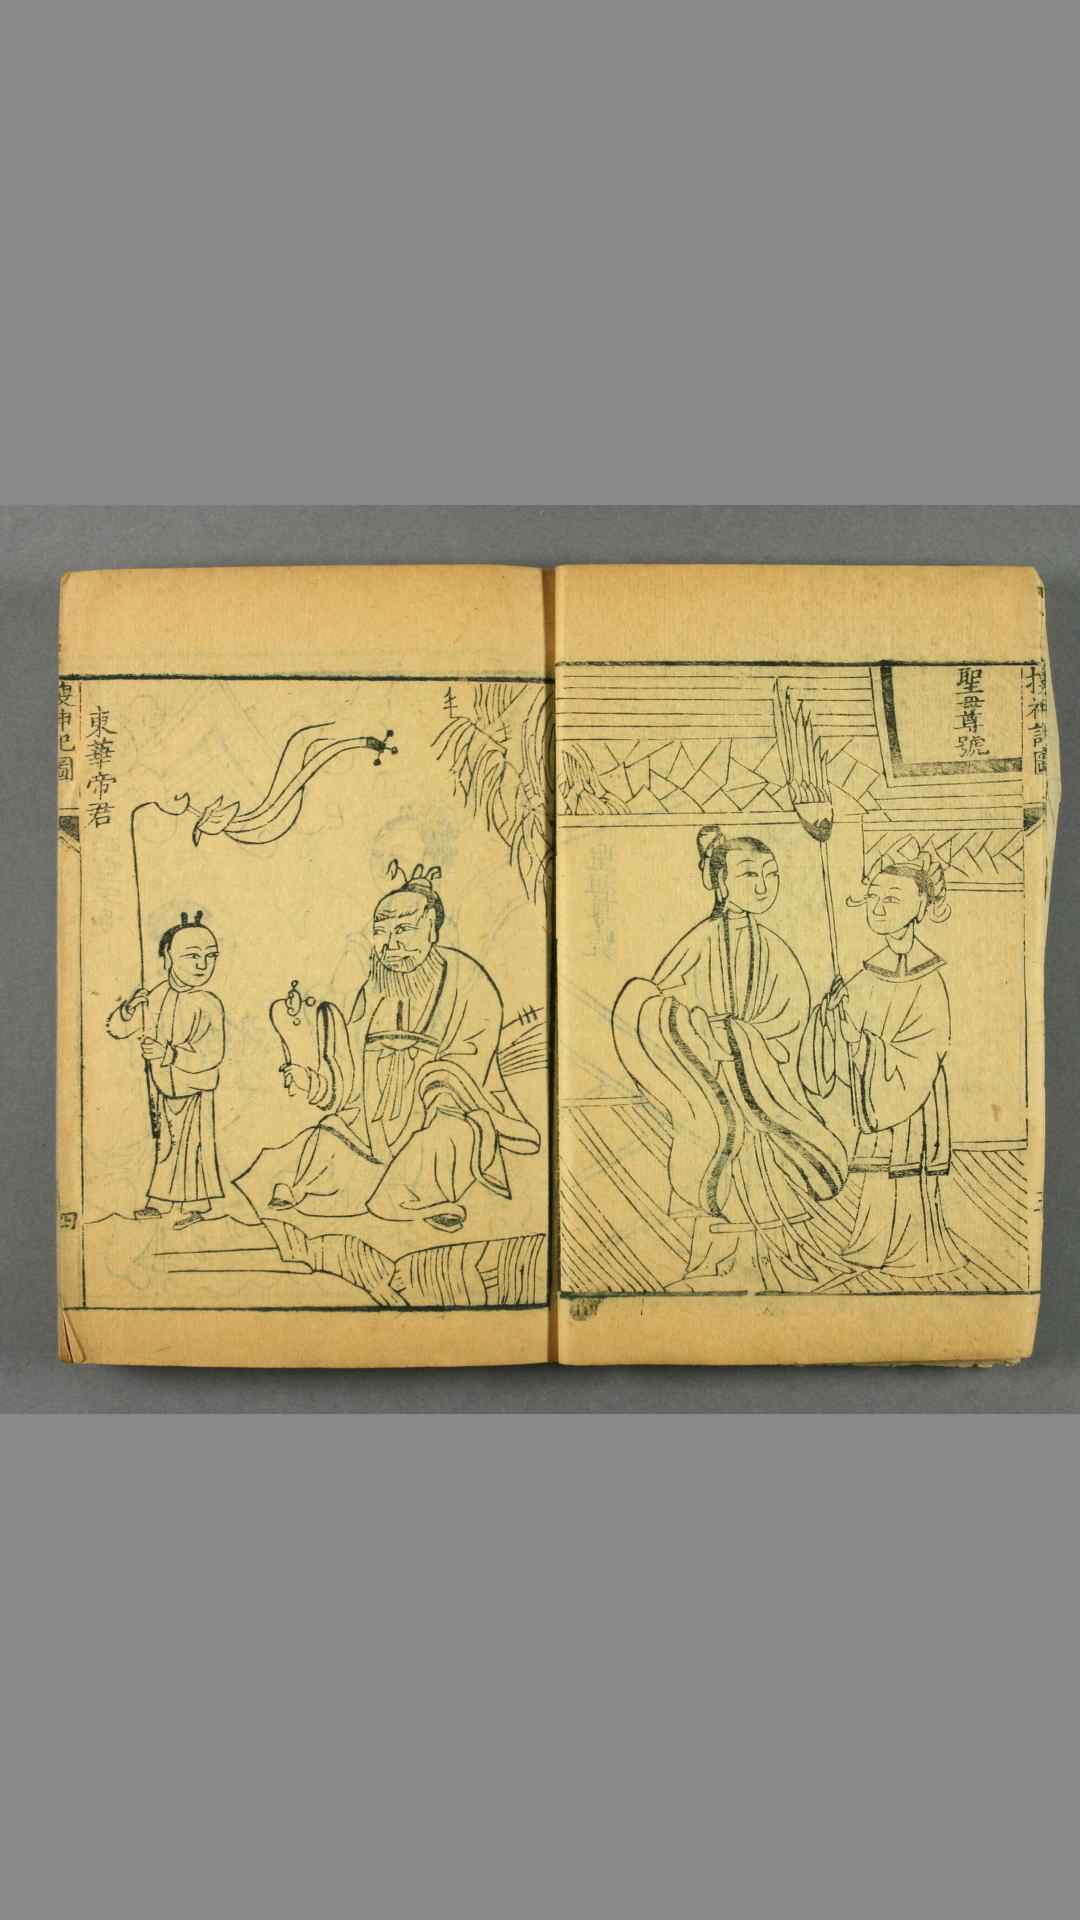 搜神記圖
聖母尊號
東華帝君
搜神記圖
四